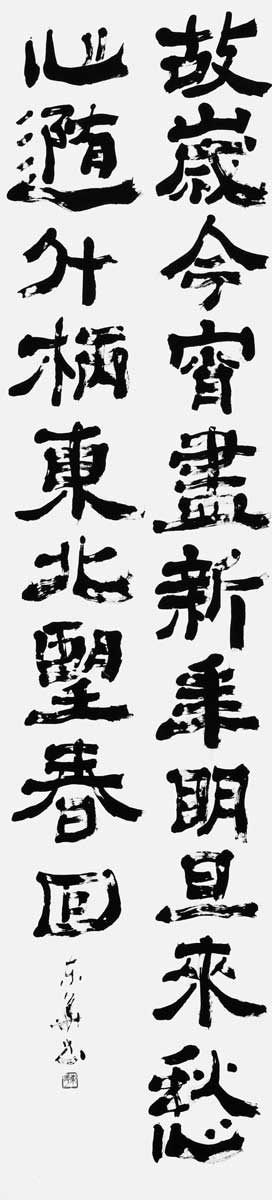 故歲今宵盡新年明旦來愁
心隨斗柄東北望春回
东華书